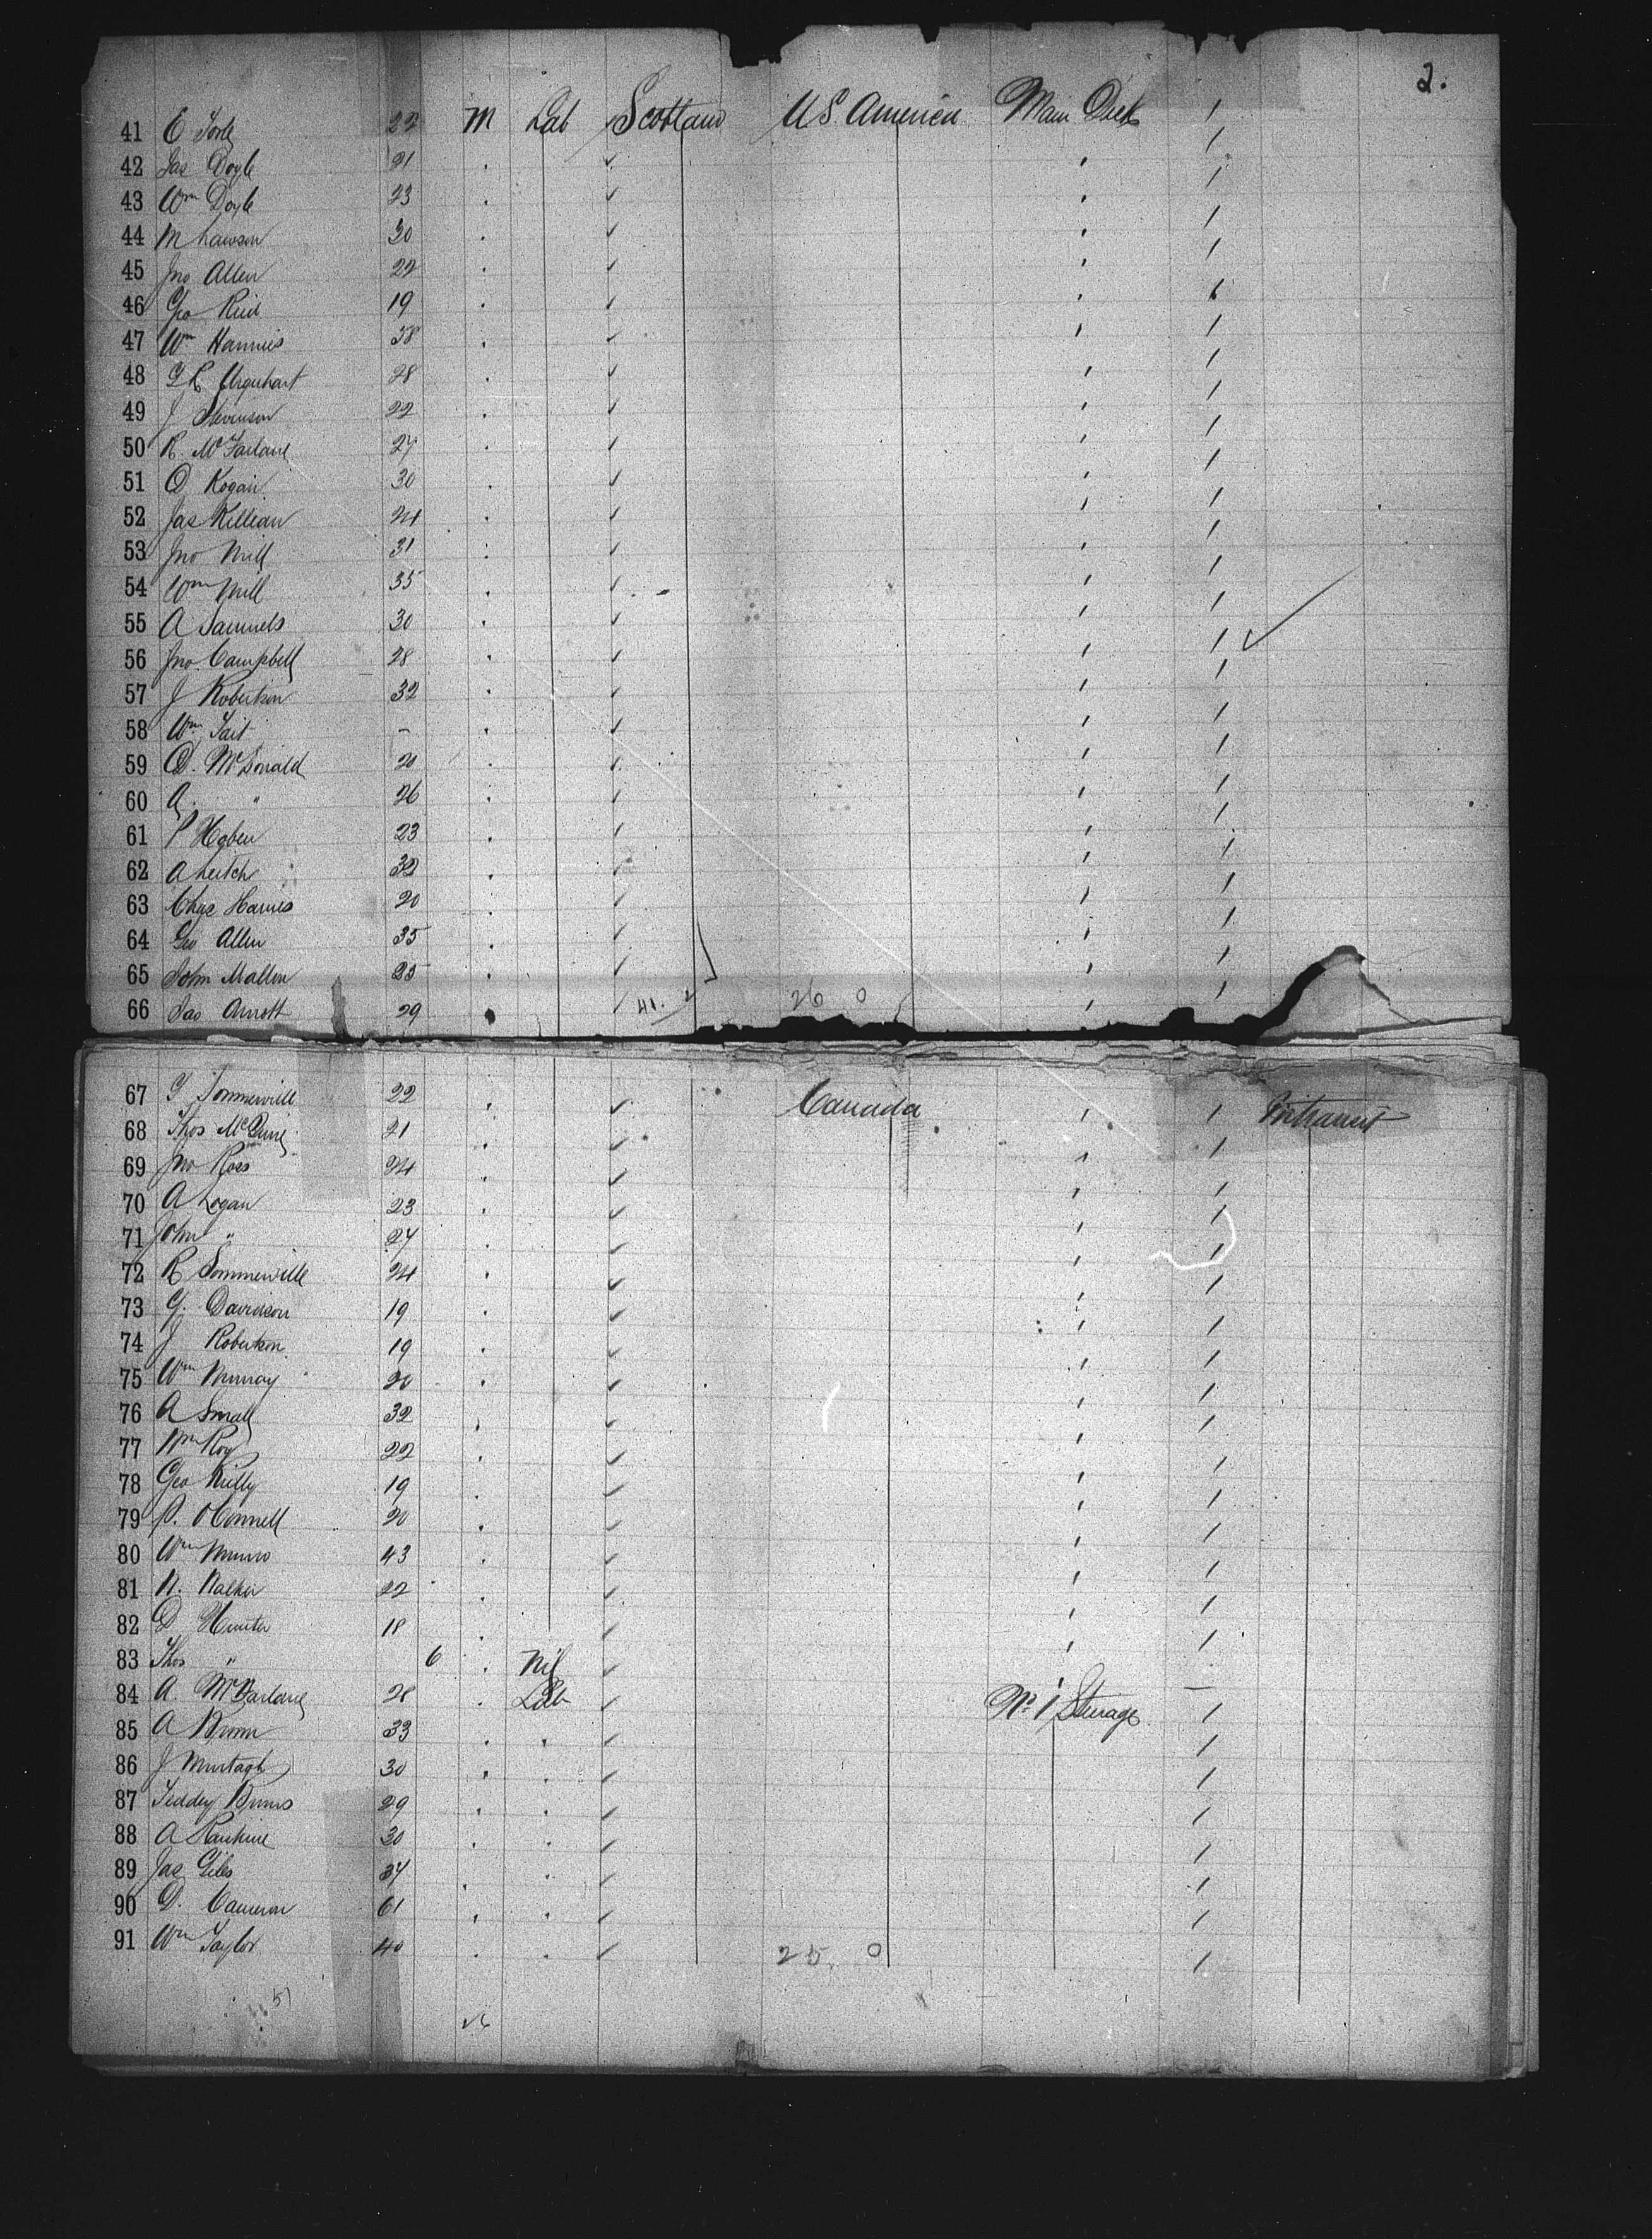 2.
41 E 22 M Lab Scotland US America Main Deck 1
42 Jas Doyle 21 1
43 Wm Doyle 23 1
44 M Lawson 30 1
45 Jno Allen 22 1
46 Geo Reid 19 1
47 Wm 38 1
48 Urquhart 28 1
49 J Stevenson 22 1
50 R. McFarlane 27 1
51 D Kogan 30 1
52 Jas Killean 24 1
53 Jno Mill 31 1
54 Wm Mill 35 1
55 A Samuels 30 1
56 Jno. Campbell 28 1
57 J Robertson 32 1
58 Wm Tait - 1
59 D. McDonald 20 1
60 A. " 26 1
61 P Hoben 23 1
62 A Leitch 32 1
63 Chas Harris 20 1
64 Geo Allen 35 1
65 John Mallon 25 1
66 Jas Arnott 29 41. 26 0 1
67 G Sommerville 22 Canada 1 Intransit
68 Thos 21 1
69 Jno Ross 24 1
70 A Logan 23 1
71 John " 27 1
72 R Sommerville 24 1
73 G. Davidson 19 1
74 J Robertson 19 1
75 Wm Murray 20 1
76 A Small 32 1
77 Wm Roy 22 1
78 Geo Reilly 19 1
79 P. OConnell 20 1
80 Wm Munro 43 1
81 N. Walker 22 1
82 D Hunter 18 1
83 Thos " 6 Nil
84 A. McFarlane 28 Lab No 1 Steerage 1
85 A Brown 33 1
86 J Murtagh 30 1
87 Teddy Burns 29 1
88 A Rankine 30 1
89 Jas Giles 34 1
90 D. Cameron 61 1
91 Wm Taylor 40 25. 0 1
51